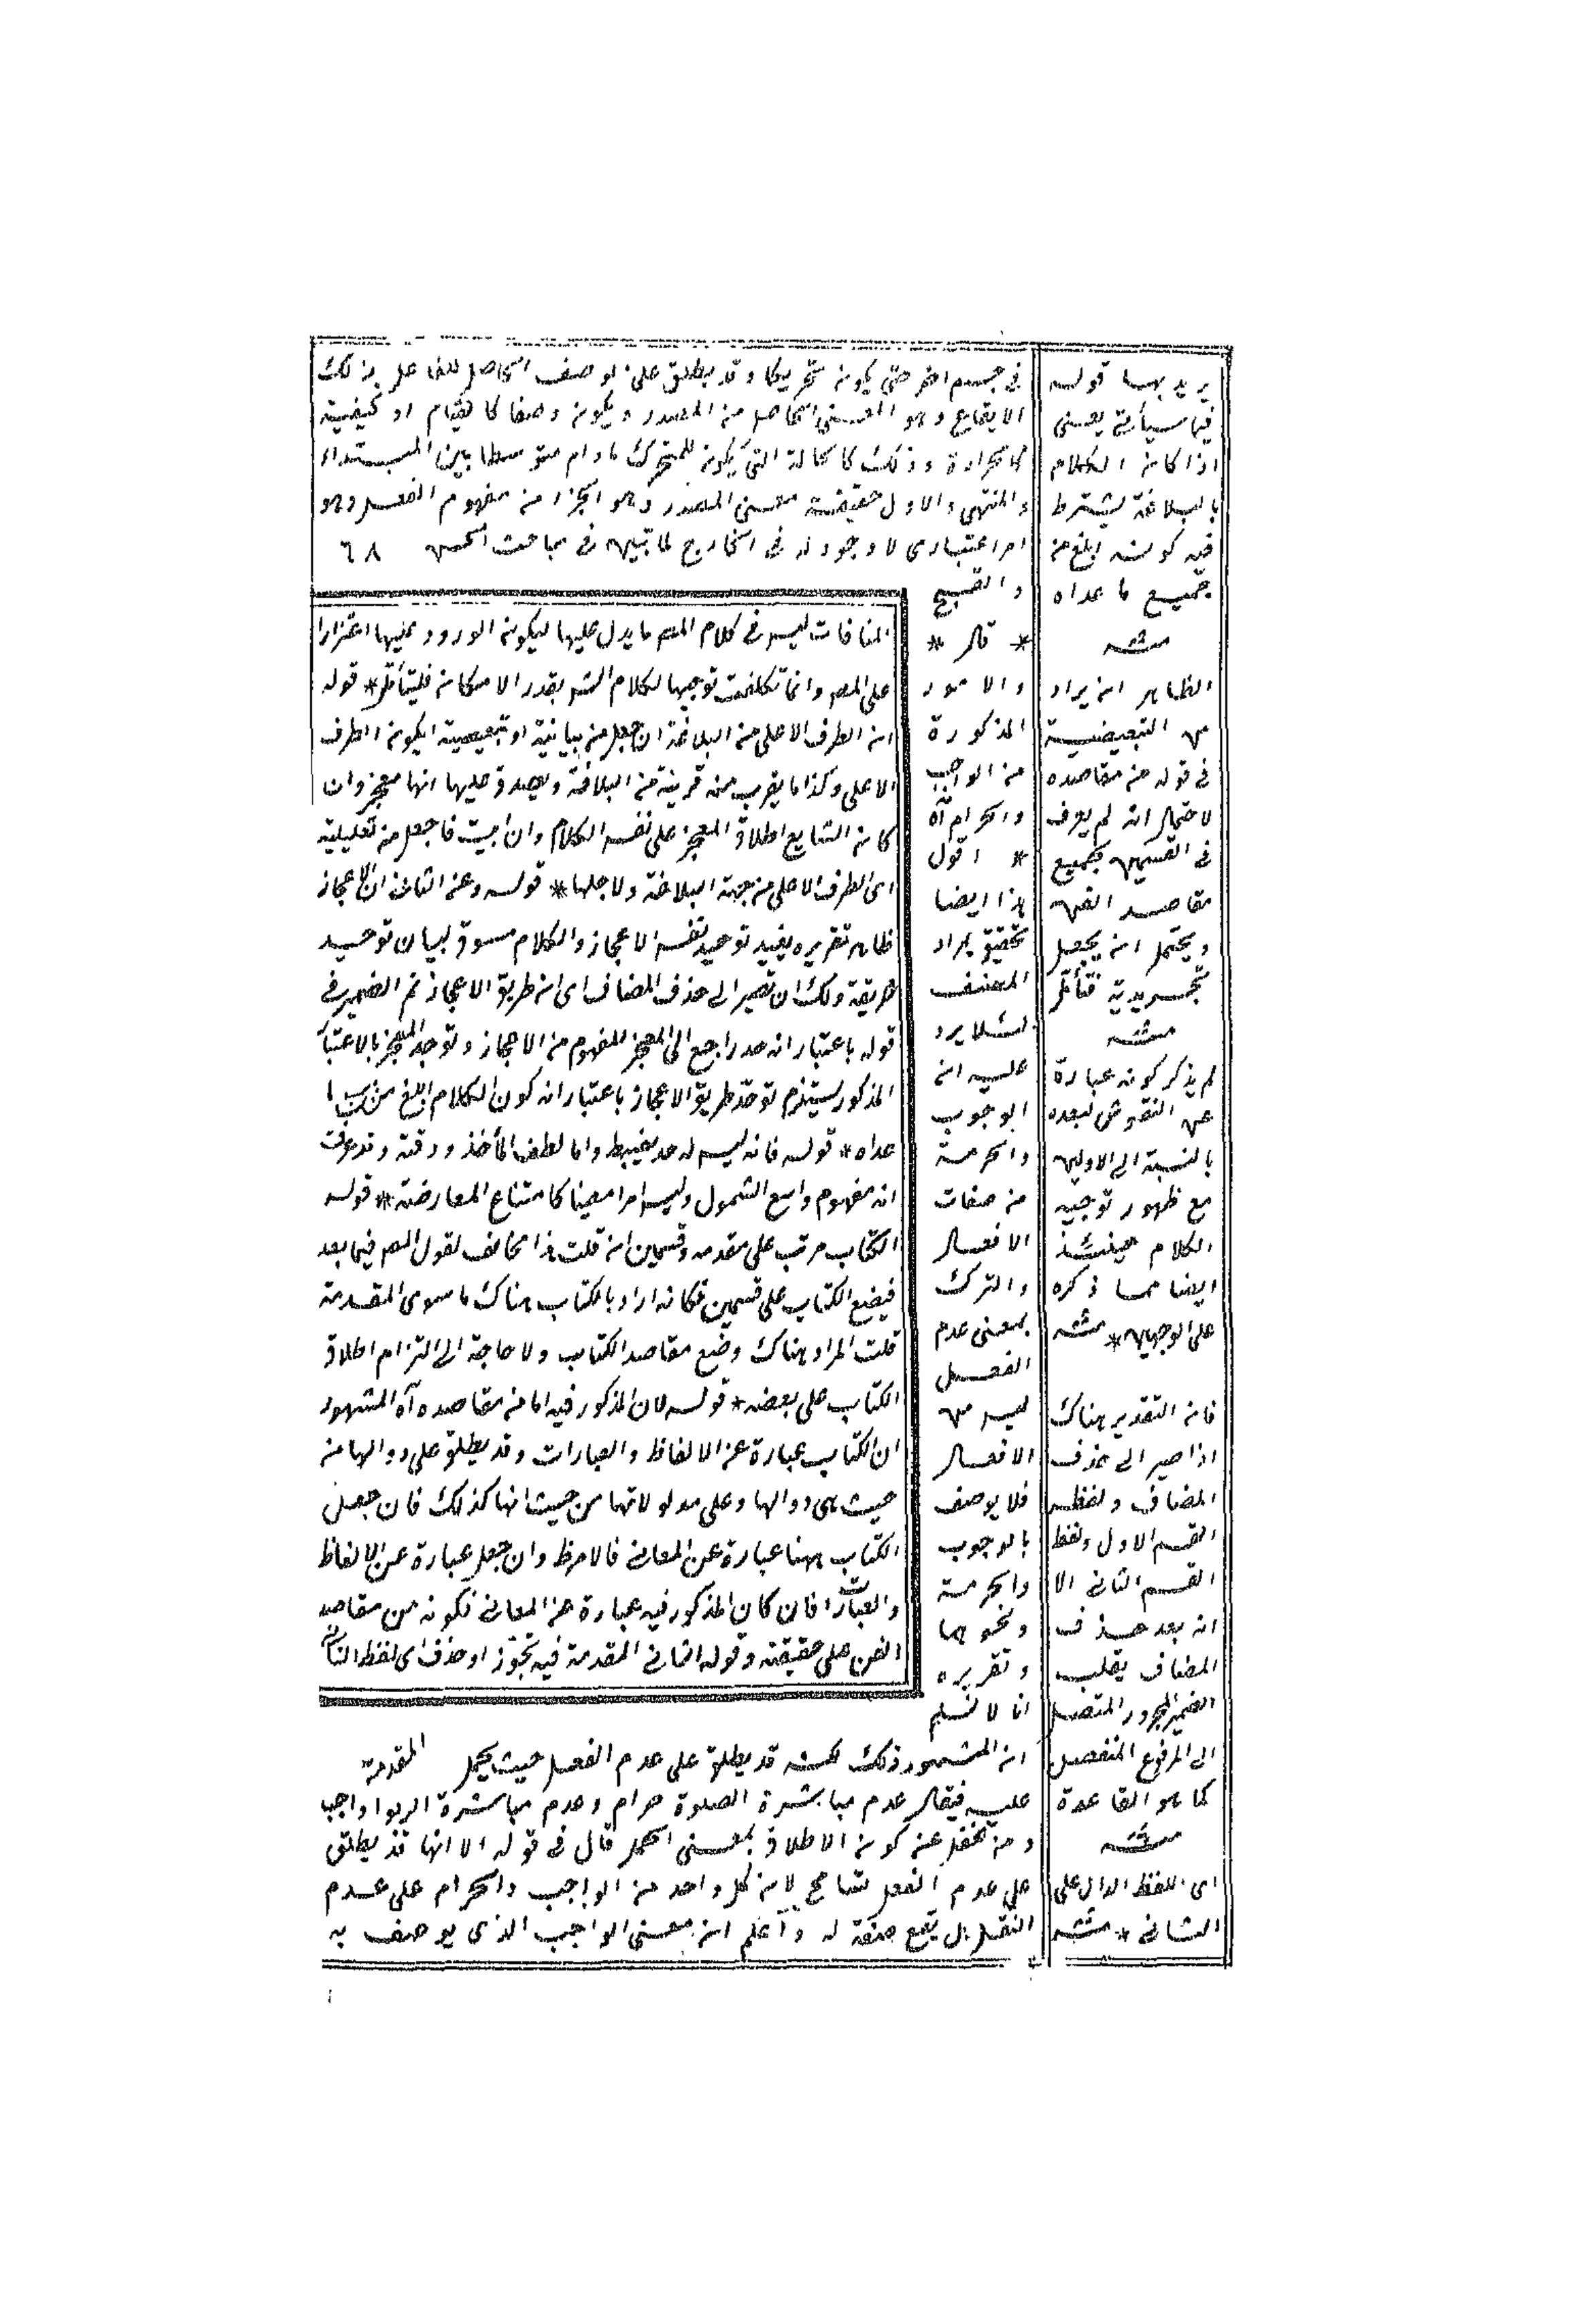 فى جسم اخر حتى يكون تحريكا وقد يطلق على الوصف الحاصل للفاعل بذلك
الايقاع وهو المعنى الحاصل من المصدر ويكون وصفا كالقيام او كيفية
كالحرارة وذلك كالحالة التى يكون للمتحرك مادام متوسطا بين المبتداء
والمنتهى والاول حقيقة معنى المصدر وهو الجزء من مفهوم الفعل وهو
امر اعتبارى لا وجود له فى الخارج لما تبين فى مباحث الحسن ٦٨
والقبيح
* قال *
والامور
المذكورة
من الواجب
والحرام آه
* اقول
هذا ايضا
تحقيق يراد
المصنف
لئلا يرد
عليه ان
الوجوب
والحرمة
من صفات
الافعال
والترك
بمعنى عدم
الفعل
ليس من
الافعال
فلا يوصف
بالوجوب
والحرمة
ونحوهما
وتقريره
انا لا نسلم
ان المشهور ذلك لكنه قد يطلق على عدم الفعل حيث يحمل
عليه فيقال عدم مباشرة الصلوة حرام وعدم مباشرة الربوا واجب
ومن غفل عن كون الاطلاق بمعنى الحمل قال فى قوله الا انها قد يطلق
على عدم الفعل تسامح لان كل واحد من الواجب والحرام على عدم
الفعل بل يقع صفة له واعلم ان معنى الواجب الذى يوصف به
المنافات ليس فى كلام المص ما يدل عليها ليكون الورود عليها اعتزارا
على المص وانما تكلفت توجيها لكلام الش بقدر الامكان فليتأمل * قوله
ان الطرف الاعلى من البلاغة ان جعل من بيانية او تبعيضية ايكون الطرف
الاعلى وكذا ما يقرب منه قرينة من البلاغة ويصدق عليها انها معجز وان
كان الشايع اطلاق المعجز على نفس الكلام وان ابيت فاجعل من تعليلية
اى الطرف الاعلى من جهة البلاغة ولاجلها * قوله وعن الثانى ان الاعجاز
ظاهر تقريره يفيد توحيد نفس الاعجاز والكلام مسوق لبيان توحيد
طريقه ولك ان تصير الى حذف المضاف اى ان طريق الاعجاز ثم الضمير فى
قوله باعتبار انه حد راجع الى المعجز المفهوم من الاعجاز وتوحد المعجز بالاعتبار
المذكور يستلزم توحد طريق الاعجاز باعتبار انه كون الكلام ابلغ من جميع ما
عداه * قوله فانه ليس له حد يضبط واما لطف المأخذ ودقته وقد عرفت
انه مفهوم واسع الشمول وليس امرا معينا كامتناع المعارضة * قوله
الكتاب مرتب على مقدمه وقسمين ان قلت هذا مخالف لقول المص فيما بعد
فيضع الكتاب على قسمين فكانه اراد بالكتاب هناك ما سوى المقدمة
قلت المراد هناك وضع مقاصد الكتاب ولا حاجة الى التزام اطلاق
الكتاب على بعضه * قوله لان المذكور فيه اما من مقاصده آه المشهور
ان الكتاب عبارة عن الالفاظ والعبارات وقد يطلق على دوالها من
حيث هى دوالها وعلى مدلولاتها من حيث انها كذلك فان جعل
الكتاب ههنا عبارة عن المعانى فالامر ظ وان جعل عبارة عن الالفاظ
والعبارات فان كان المذكور فيه عبارة عن المعانى فكونه من مقاصد
الفن على حقيقته وقوله الثانى المقدمة فيه تجوز او حذف اى لفظ الثانى
المقدمة
يريد بها قوله
فيما سيأتى يعنى
اذا كان الكلام
بالبلاغة يشترط
فيه كونه ابلغ من
جميع ما عداه
منه
الظاهر ان يراد
من التبعيضية
فى قوله من مقاصده
لاحتمال انه لم يعرف
فى القسمين بجميع
مقاصد الفن
ويحتمل ان يجعل
تجريدية فتأمل
منه
لم يذكر كونه عبارة
عن النقوش لبعده
بالنسبة الى الاولين
مع ظهور توجيه
الكلام حينئذ
ايضا مما ذكره
على الوجهين * منه
فان التقدير هناك
اذا صير الى حذف
المضاف ولفظ
القسم الاول ولفظ
القسم الثانى الا
انه بعد حذف
المضاف يقلب
الضمير المجرور المتصل
الى المرفوع المنفصل
كما هو القاعدة
منه
اى اللفظ الدال على
الثانى * منه